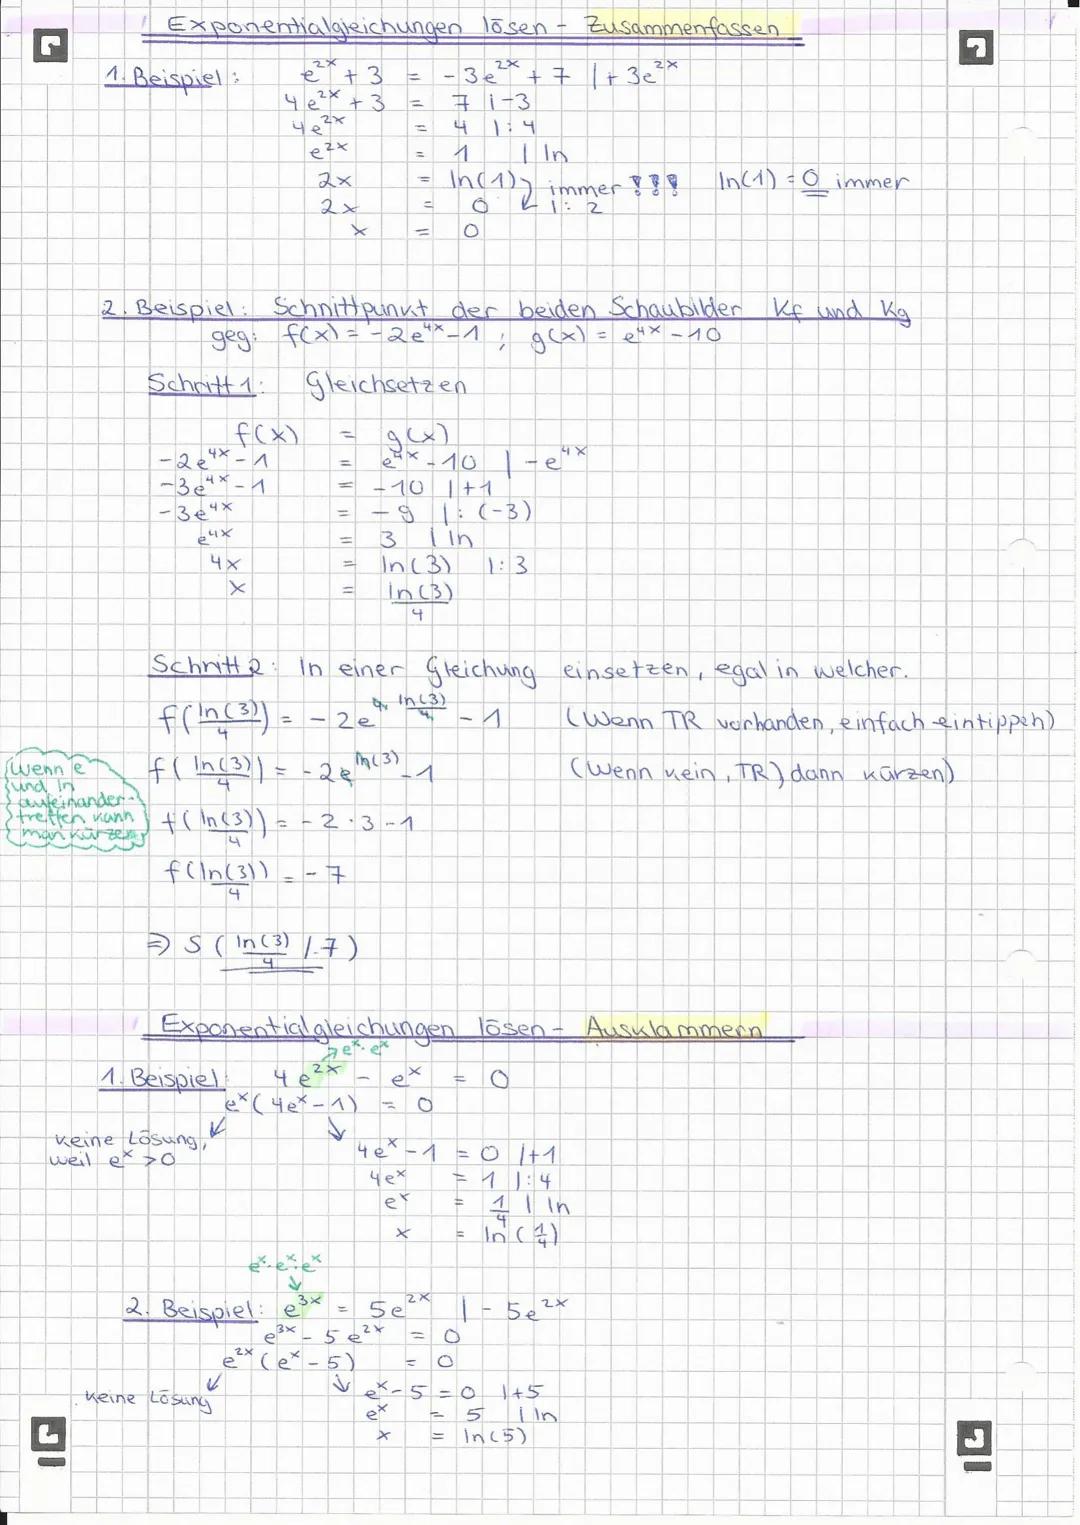 Exponentialgleichungen lösen - Zusammenfassen
1. Beispiel: e^2x + 3 = -3e^2x + 7 | + 3e^2x
4e^2x + 3 = 7 | -3
4e^2x = 4 | : 4
e^2x = 1 | ln
2x = ln(1) immer !!! ln(1) = 0 immer
2x = 0 | : 2
x = 0
2. Beispiel: Schnittpunkt der beiden Schaubilder Kf und Kg
geg: f(x) = -2e^4x - 1 ; g(x) = e^4x - 10
Schritt 1: Gleichsetzen
f(x) = g(x)
-2e^4x - 1 = e^4x - 10 | - e^4x
-3e^4x - 1 = -10 | +1
-3e^4x = -9 | : (-3)
e^4x = 3 | ln
4x = ln(3) | : 3
x = ln(3)/4
Schritt 2: In einer Gleichung einsetzen, egal in welcher.
f(ln(3)/4) = -2e^4·ln(3)/4 - 1 (Wenn TR vorhanden, einfach eintippen)
f(ln(3)/4) = -2e^ln(3) - 1 (Wenn kein TR) dann kürzen)
Wenn e
und ln
aufeinander-
treffen kann
man kürzen
f(ln(3)/4) = -2 · 3 - 1
f(ln(3)/4) = -7
⇒ S (ln(3)/4 / -7)
Exponentialgleichungen lösen - Ausklammern
e^x · e^x
1. Beispiel: 4e^2x - e^x = 0
e^x (4e^x - 1) = 0
keine Lösung,
weil e^x > 0
4e^x - 1 = 0 | +1
4e^x = 1 | : 4
e^x = 1/4 | ln
x = ln(1/4)
e^x · e^x · e^x
2. Beispiel: e^3x = 5e^2x | - 5e^2x
e^3x - 5e^2x = 0
e^2x (e^x - 5) = 0
keine Lösung e^x - 5 = 0 | +5
e^x = 5 | ln
x = ln(5)